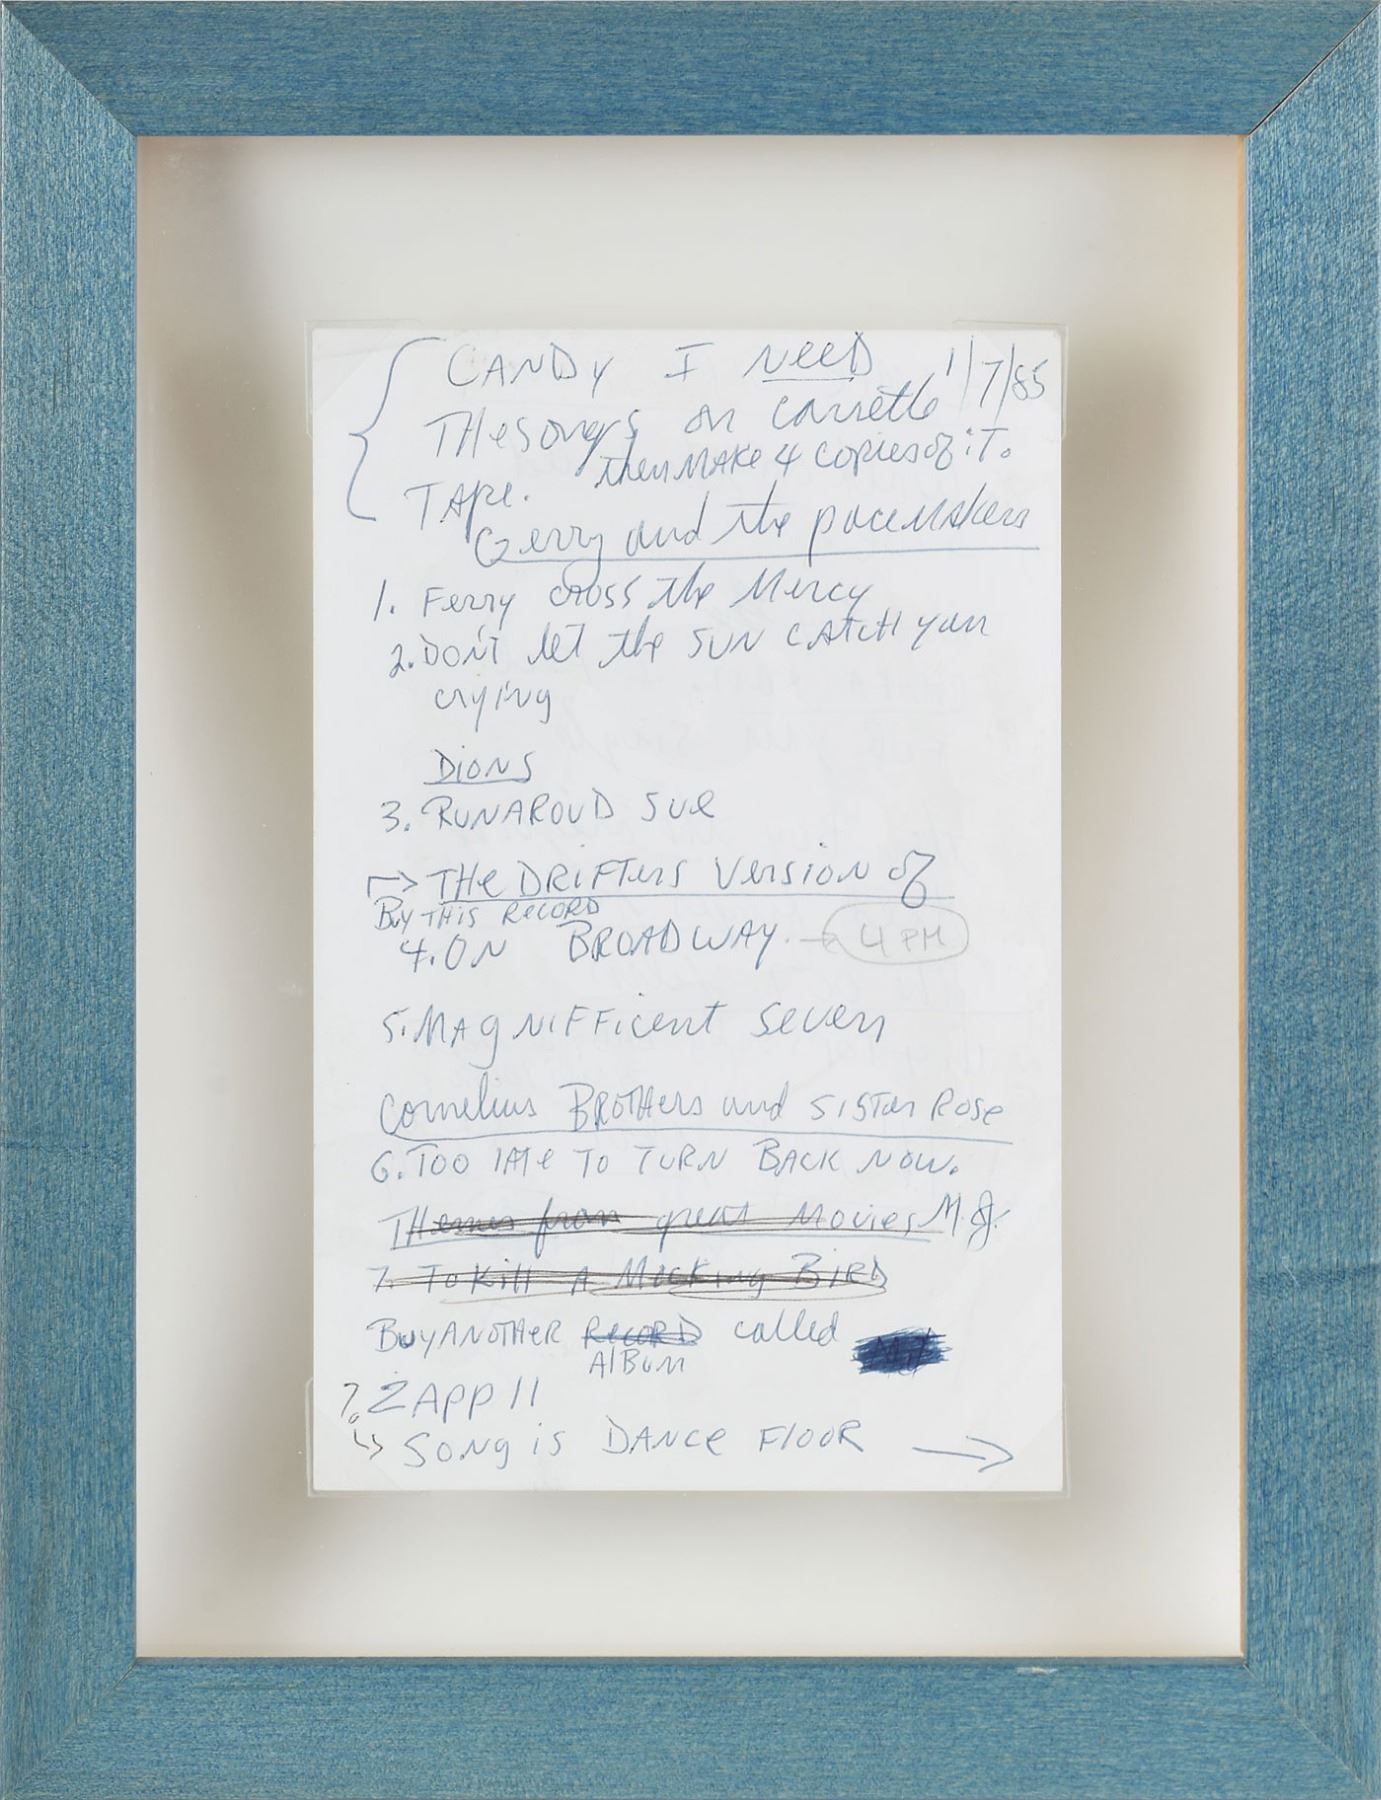 CANDY I NEED 1/7/85
THesongs on Cassette
TApe. then MAKe 4 copies of iT.
Gerry and the paceMAkers
1. Ferry cross the Mercy
2. DON'T let the SUN CATCH you
crying
DIONS
3. RUNAROUD SUe
→ THe DRiFTers Version of
Buy THis RecoRD
4. ON BROADWAY. → 4 PM
5. MAgNiFFicent Seven
Cornelius BROTHers and SiSTer Rose
6. TOO lATe TO TURN BACK NOW.
THemes from great Movies M.J.
7. To Kill A Mocking BiRD
Buy ANOTHeR RecoRD called
AlBum
7. ZAPP II
↳ SONg is DANCe FlOOR →